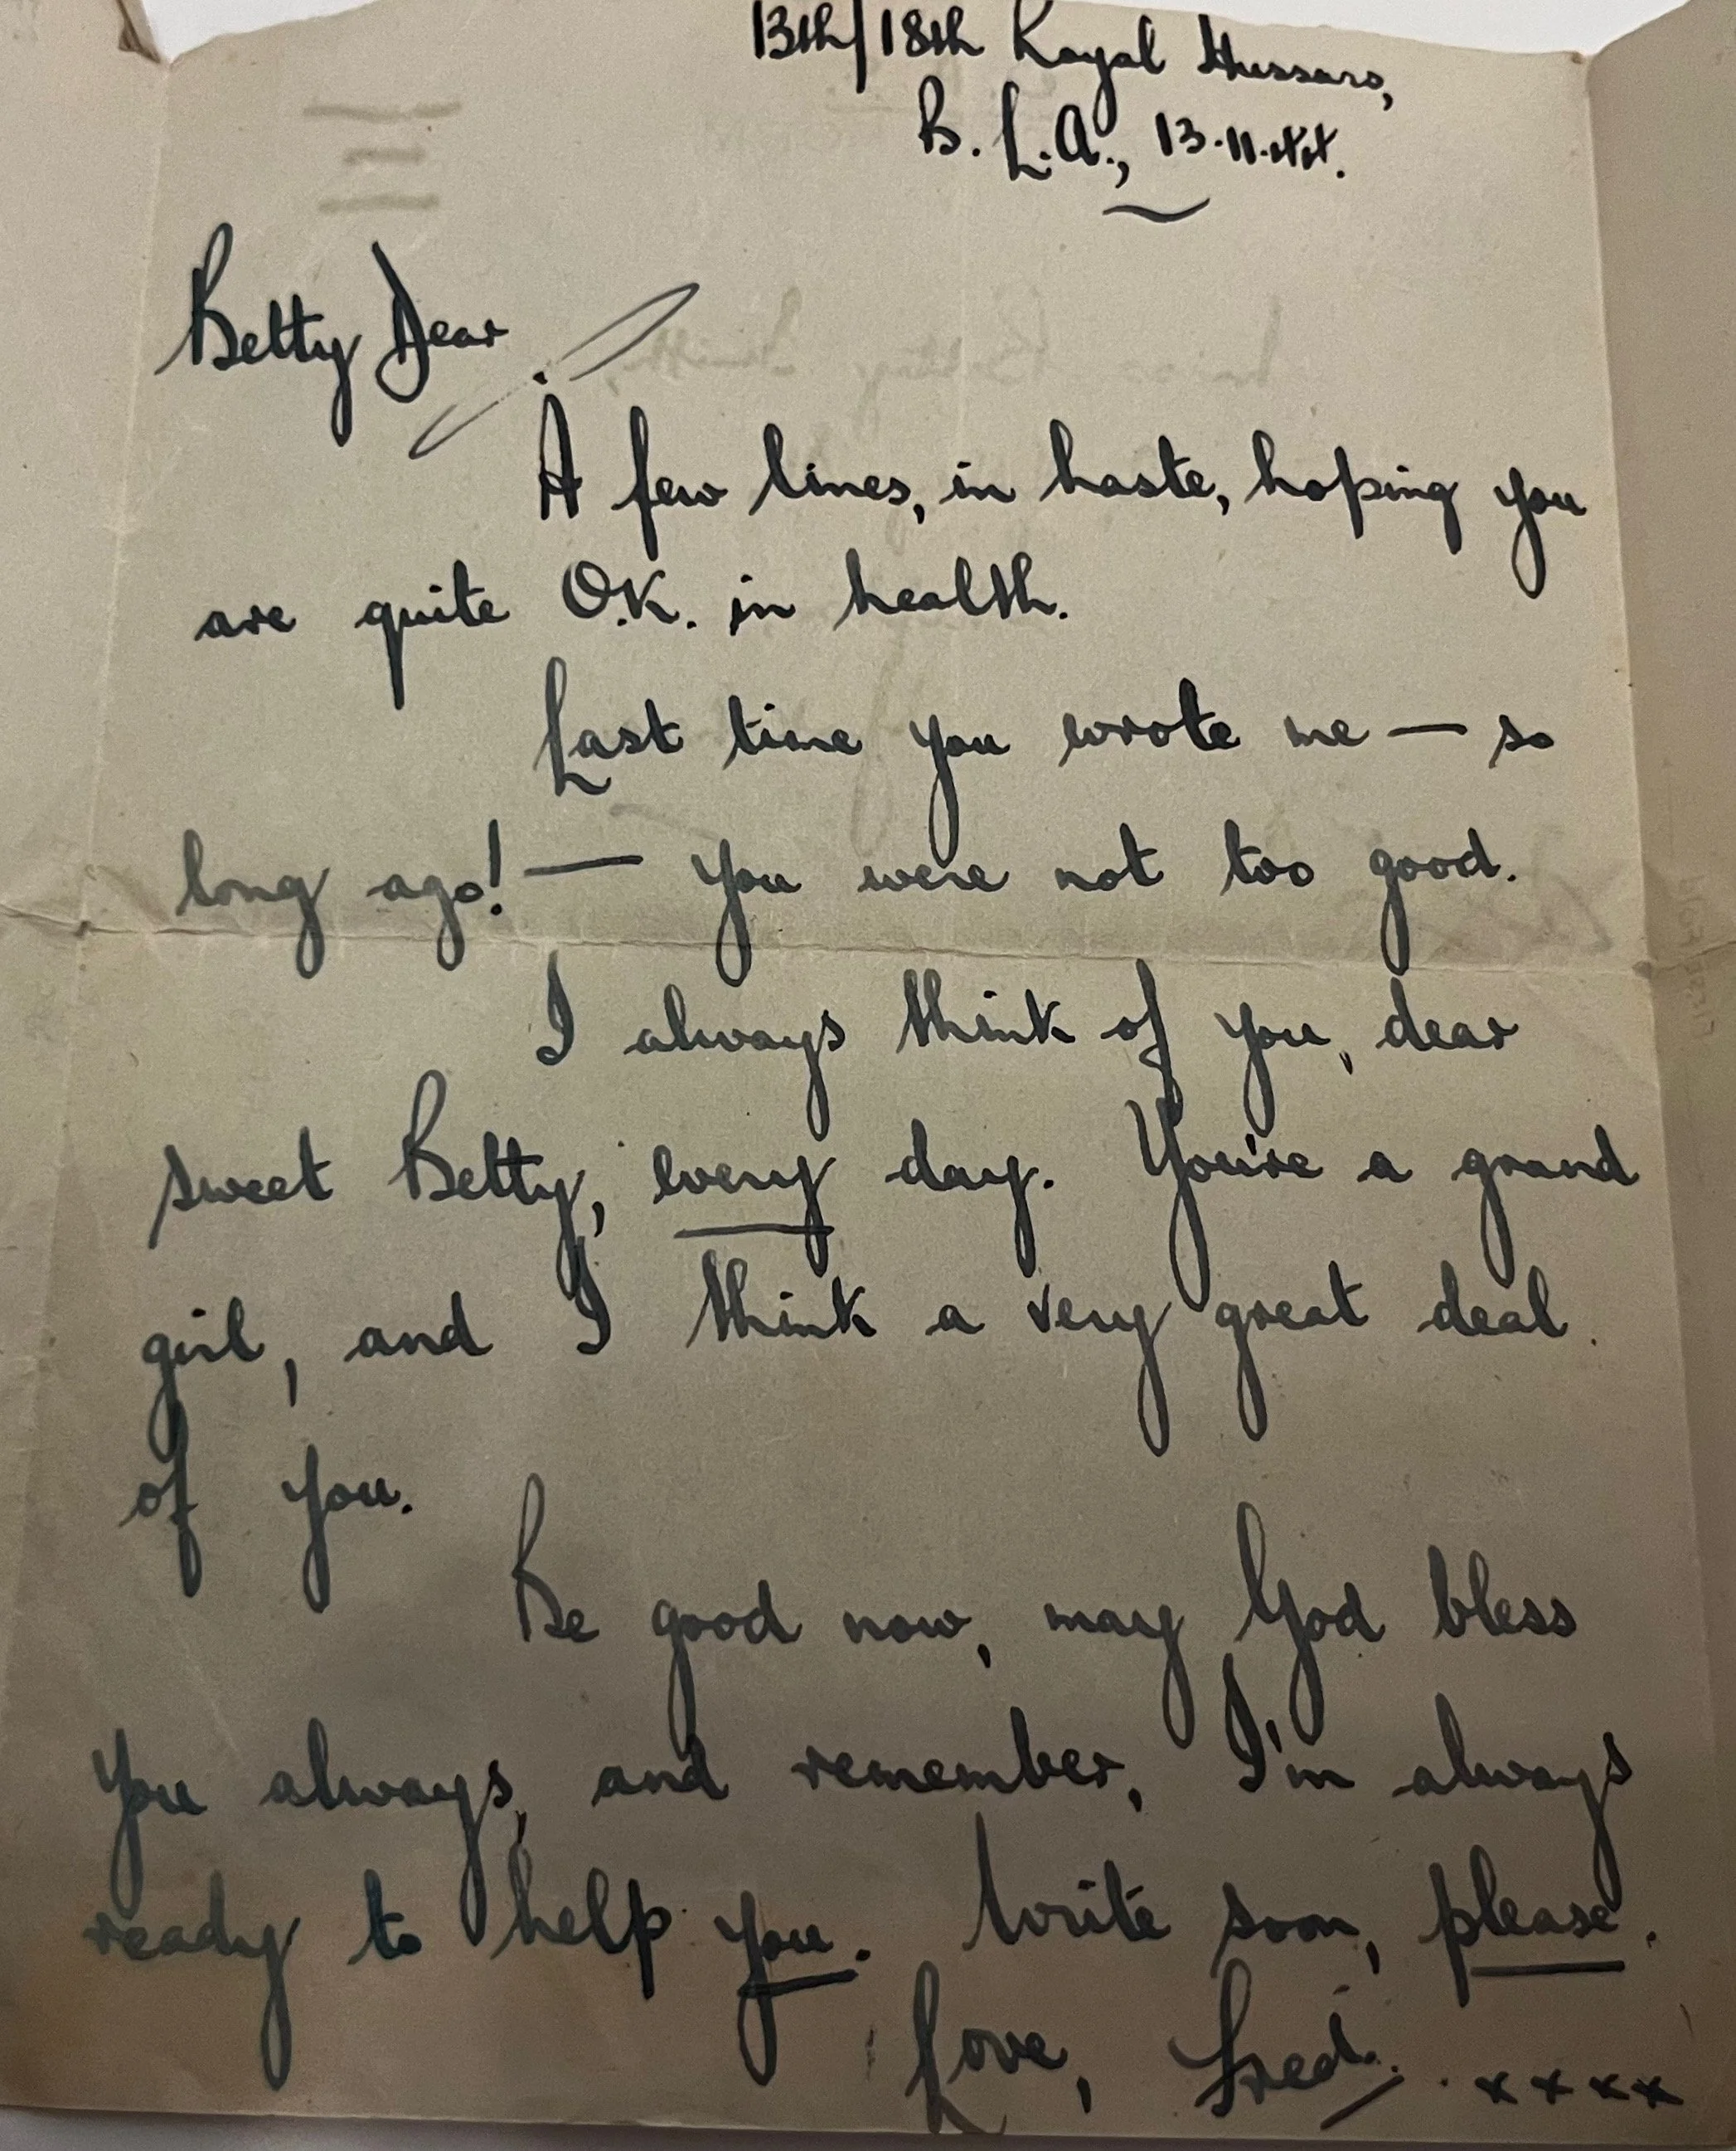 13th/18th Royal Hussars,
B.L.A., 13.11.44.
Betty Dear
A few lines, in haste, hoping you
are quite O.K. in health.
Last time you wrote me — so
long ago! — you were not too good.
I always think of you, dear
sweet Betty, every day. You're a grand
girl, and I think a very great deal
of you.
Be good now, may God bless
you always, and remember, I'm always
ready to help you. Write soon, please.
Love, Fred. xxxx